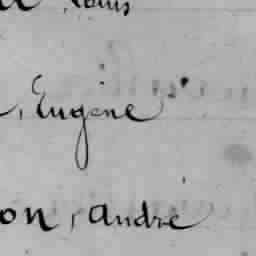 Louis
, Eugène
on, André